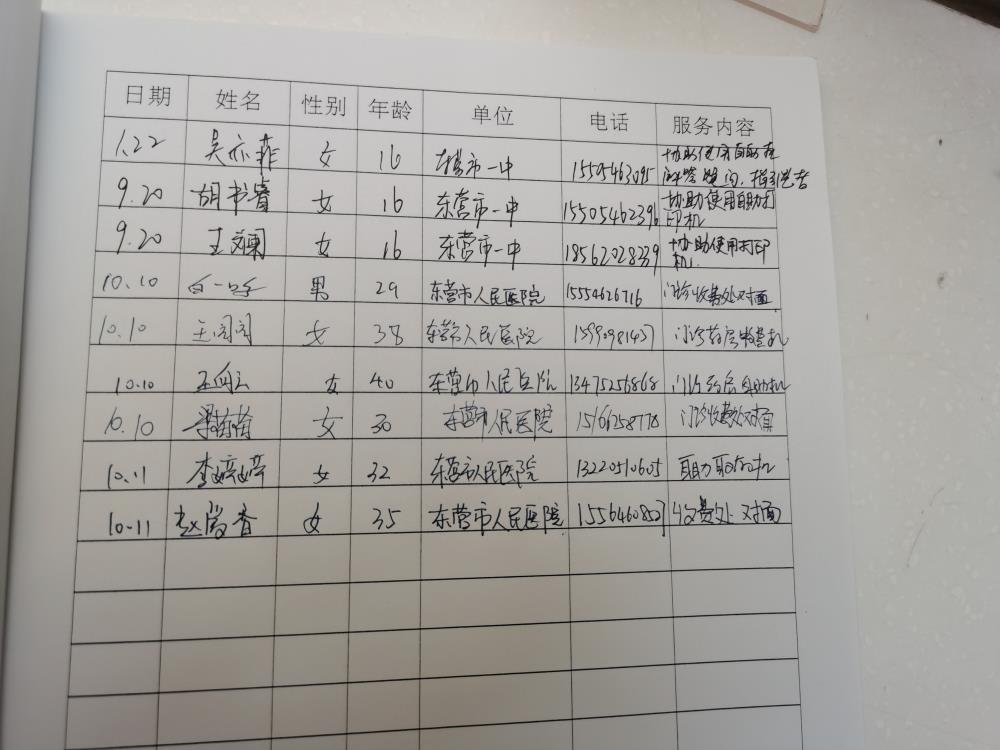 日期 姓名 性别 年龄 单位 电话 服务内容
1.22 吴亦菲 女 16 东营市一中 15505463095 协助使用自助机 解答疑问，指引患者
9.20 胡书睿 女 16 东营市一中 15505462396 协助使用自助打印机
9.20 王斓 女 16 东营市一中 18562028339 协助使用打印机.
10.10 男 29 东营市人民医院 15554626716 门诊收费处对面
10.10 王闵闵 女 38 东营市人民医院 15990981437 门诊药房收费机
10.10 王向云 女 40 东营市人民医院 13475256868 门诊药房自助机
10.10 梁苗苗 女 30 东营市人民医院 15166258778 门诊收款处对面
10.11 李婷婷 女 32 东营市人民医院 13220510605 自助取机
10-11 赵爱香 女 35 东营市人民医院 15564608527 收费处对面